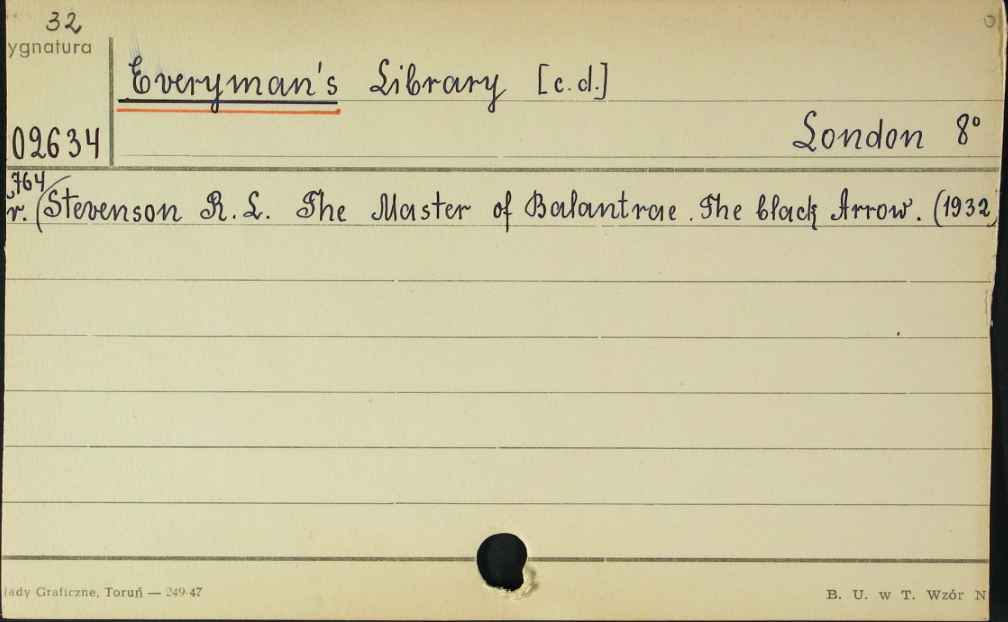 32
ygnatura
Everyman's Library [c.d.]
02634
London 8°
764
r. (Stevenson R. L. The Master of Balantrae. The black Arrow. (1932)
ady Graficzne, Toruń — 249-47
B. U. w T. Wzór N